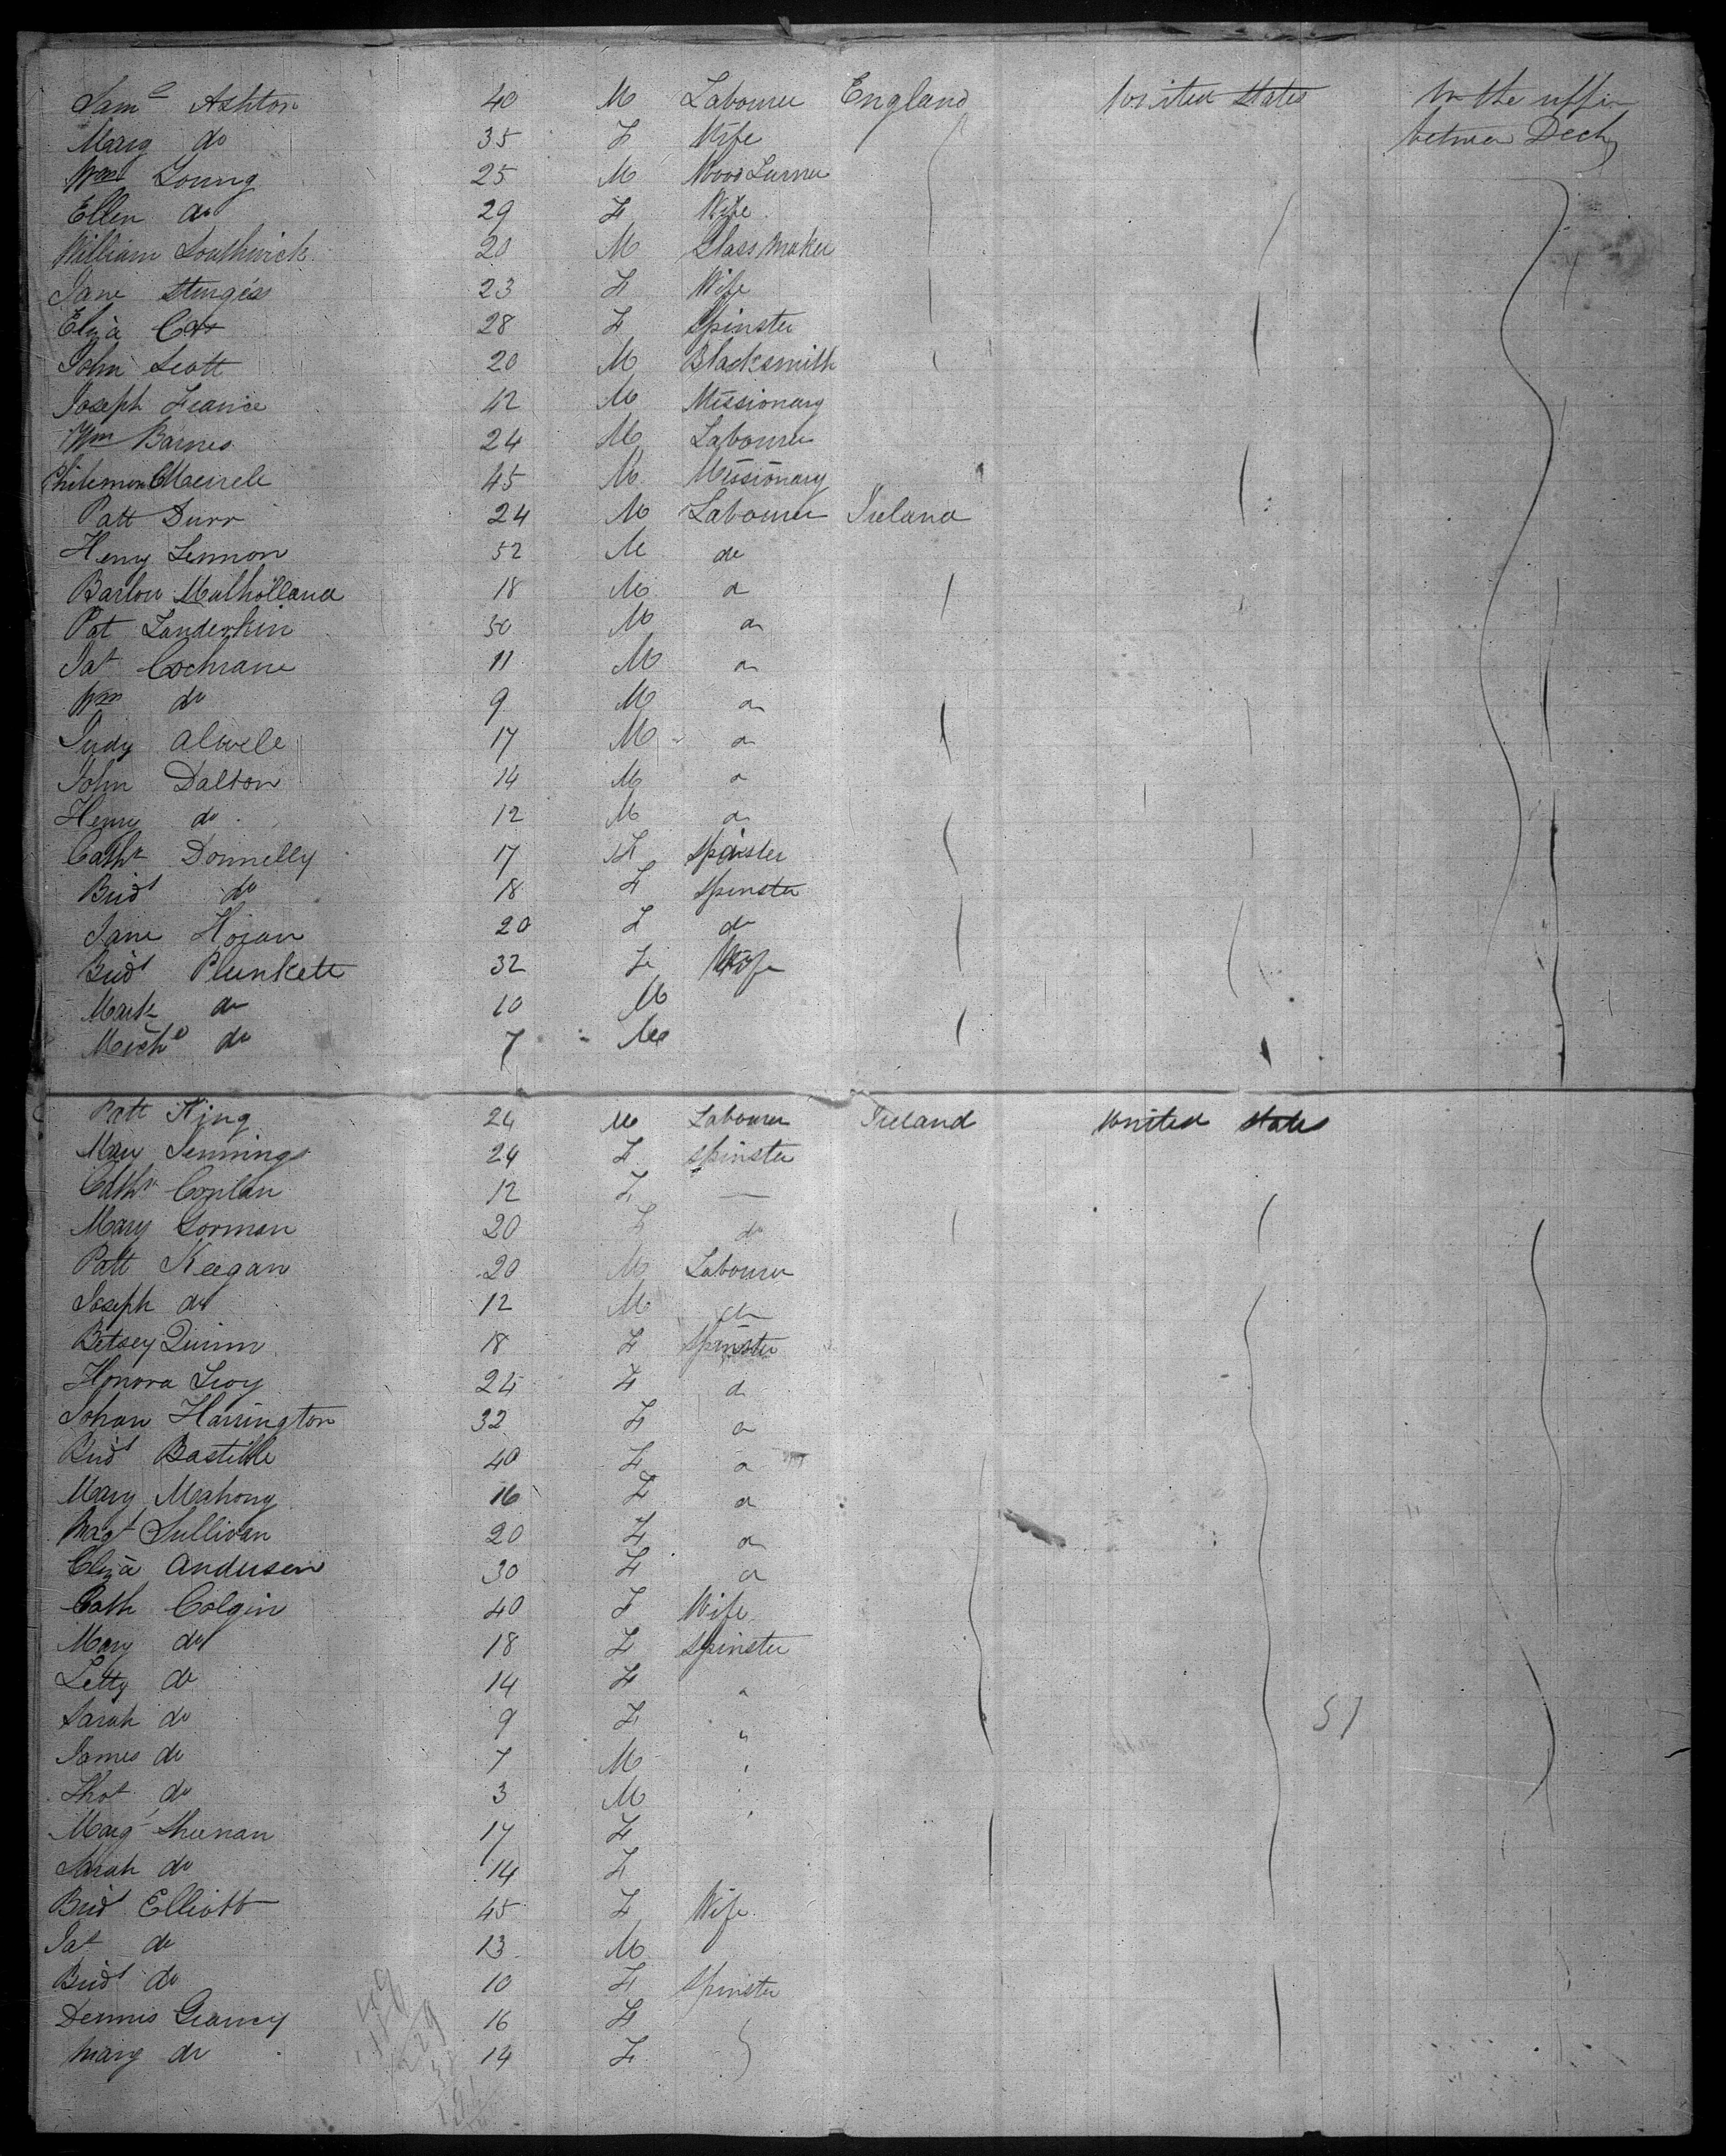 Saml Ashton 40 M Labourer England United States In the upper
Mary do 35 F Wife between Decks
Wm Young 25 M Wood Turner
Ellen do 29 F Wife
William Southwick 20 M Glass Maker
Jane Sturgess 23 F Wife
Eliza Cox 28 F Spinster
John Scott 20 M Blacksmith
Joseph France 42 M Missionary
Wm Barnes 24 M Labourer
Philemon 45 M Missionary
Patt Durr 24 M Labourer Ireland
Henry Lennon 52 M do
Bartow Mulholland 18 M do
Pat Landerkin 50 M do
Jas Cochrane 11 M do
Wm do 9 M do
Judy 17 M do
John Dalton 14 M do
Henry do 12 M do
Cathr Donnelly 17 F Spinster
Bridt do 18 F Spinster
Jane Hogan 20 F do
Bridt Plunkett 32 F Wife
Mark do 10 M
Michl do 7 M
Patt King 24 M Labourer Ireland United States
Mary Jennings 24 F Spinster
Cathr Conlan 12 F —
Mary Gorman 20 F do
Patt Keegan 20 M Labourer
Joseph do 12 M do
Betsey Quinn 18 F Spinster
Honora Leoy 24 F do
Johan Harrington 32 F do
Bridt Bastille 40 F do
Mary Mahony 16 F do
Magt Sullivan 20 F do
Eliza Anderson 30 F do
Cath Colgin 40 F Wife
Mary do 18 F Spinster
Letty do 14 F "
Sarah do 9 F " 51
James do 7 M "
Thos do 3 M "
Marg Sheenan 17 F
Sarah do 14 F
Brid Elliott 45 F Wife
Jas do 13 M
Bridt do 10 F Spinster
Dennis Geancy 16 F
Marg do 14 F